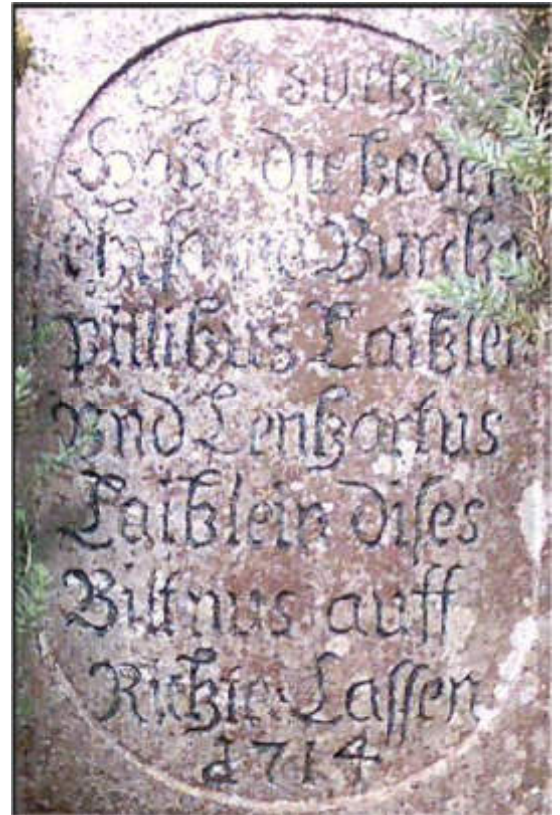 Gott zu
Habe die beden
pillibus Laiblein
Vnd Lenhartus
Laiblein diſes
Biltnus auff
Richte Laſſen
1714